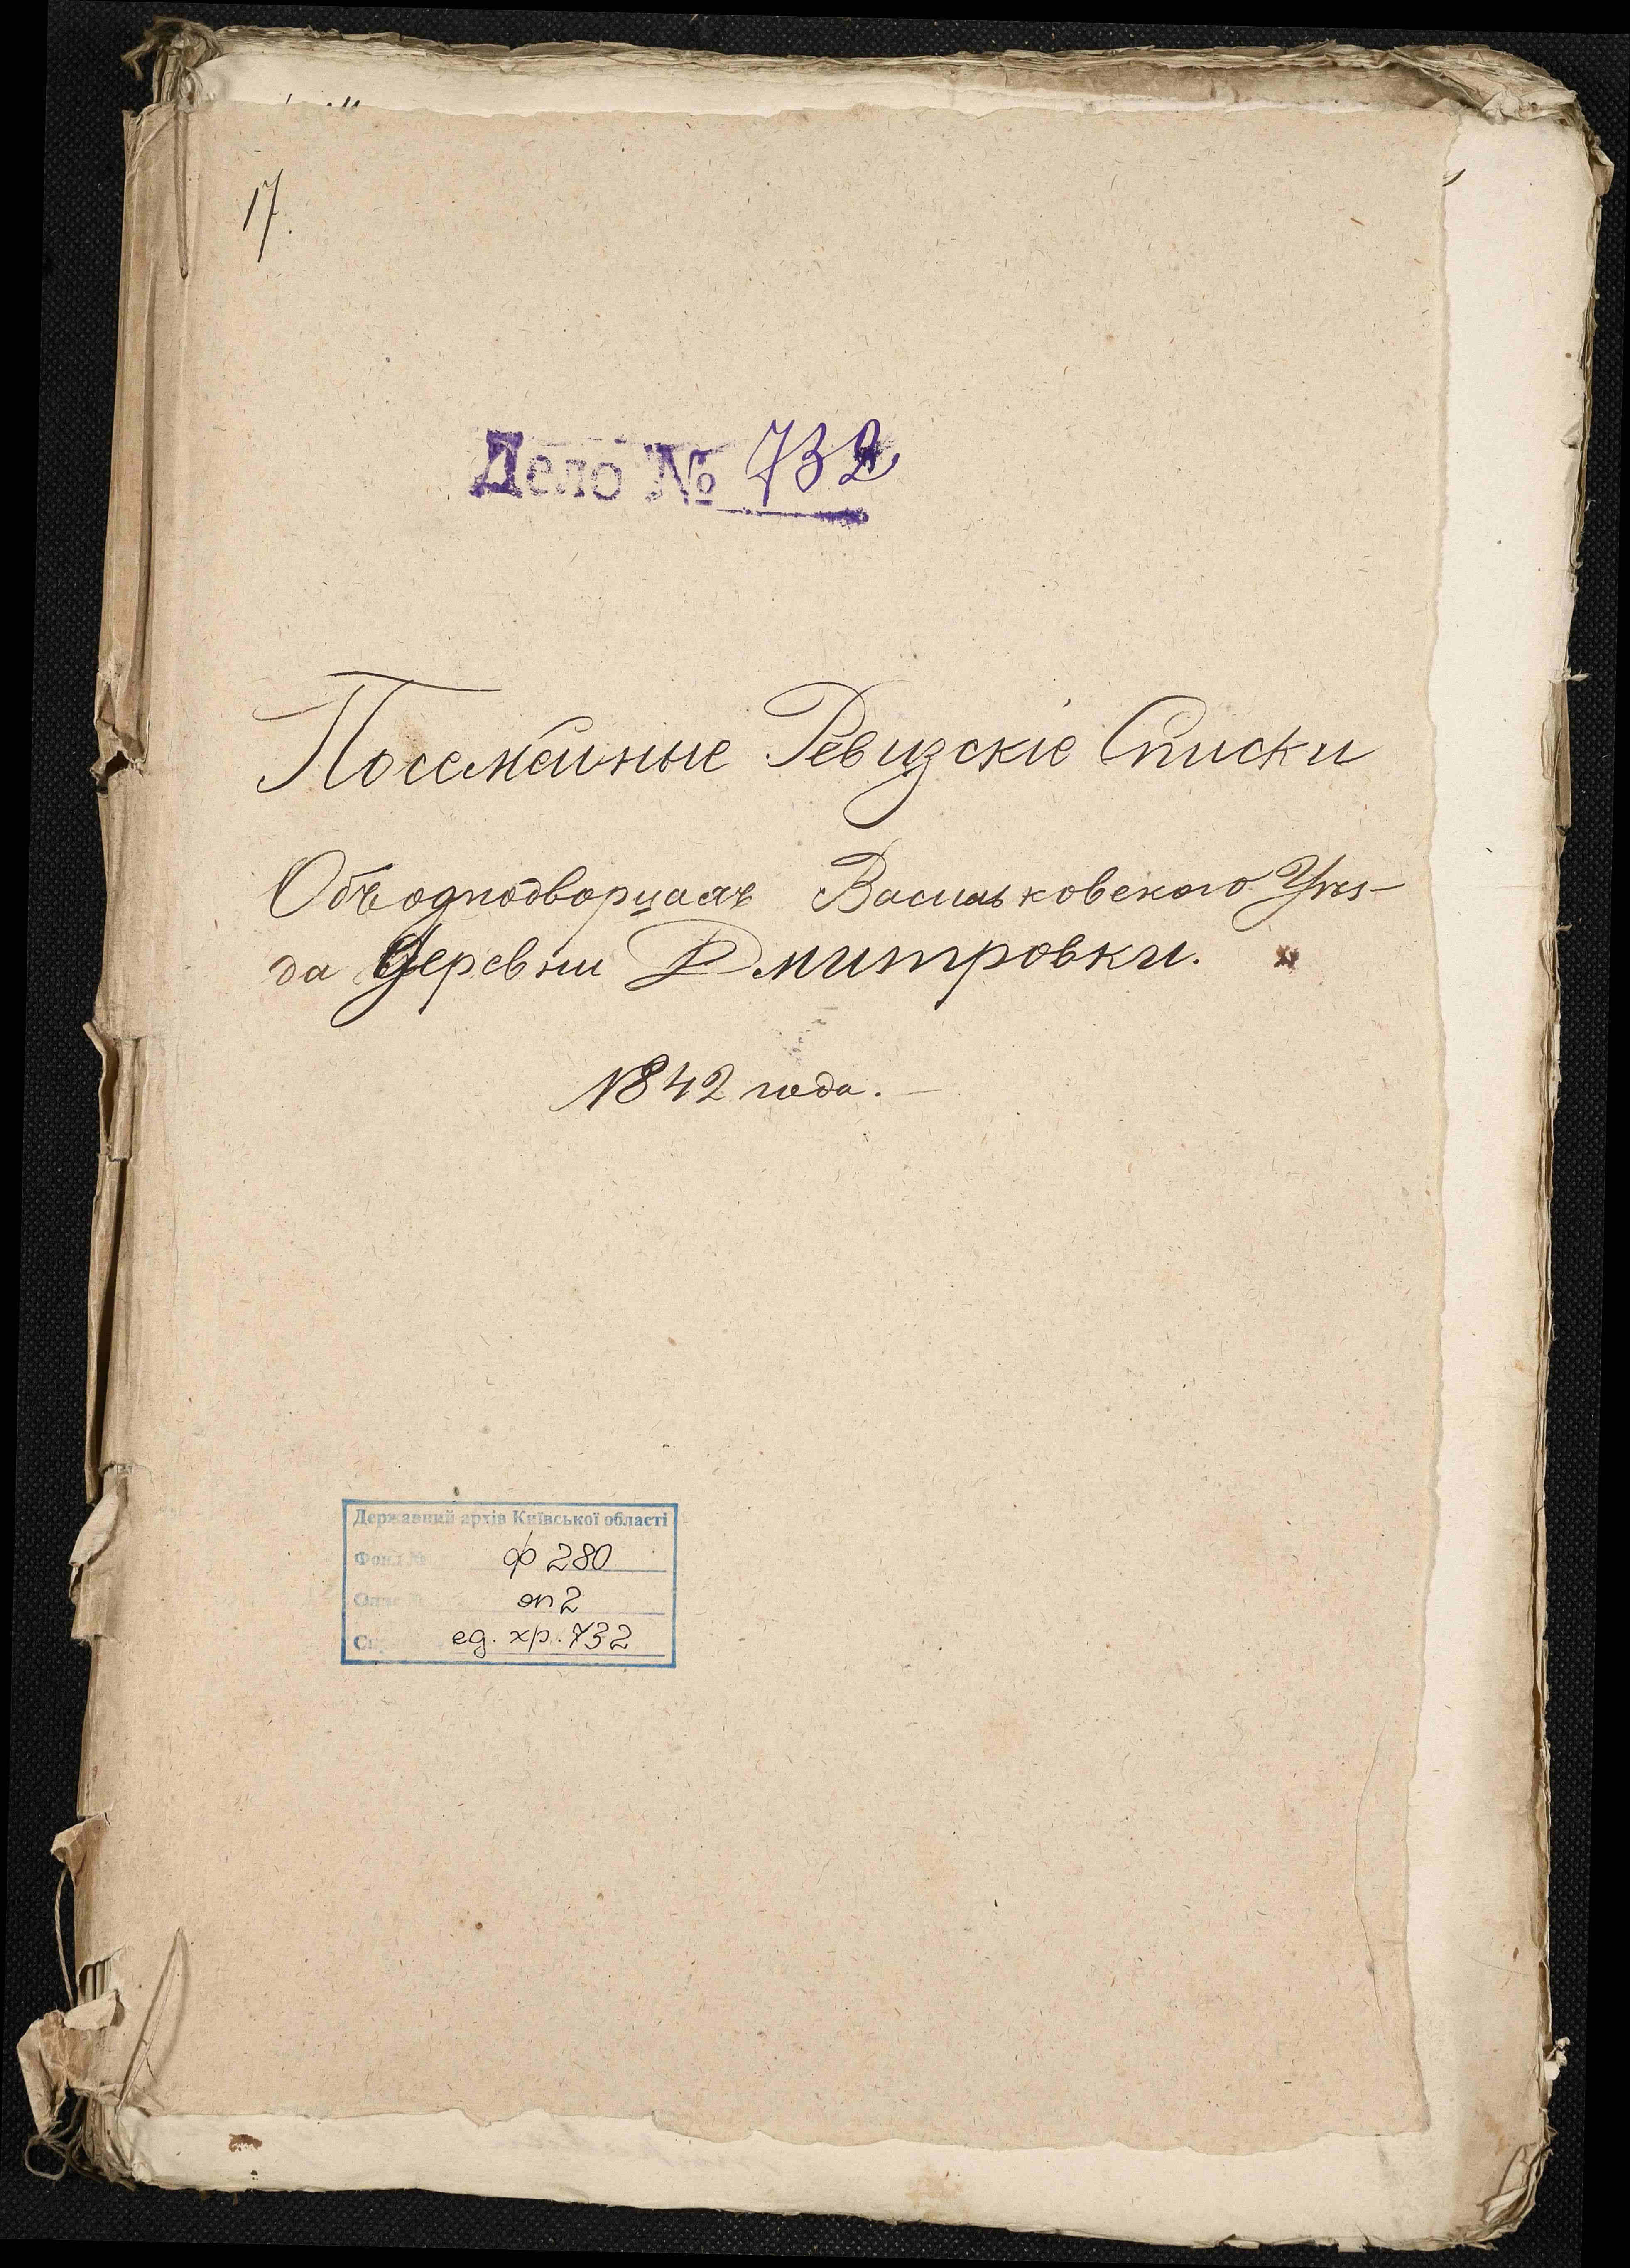 17.
Дело № 732
Посемейные Ревизскіе Списки
Объ однодворцахъ Васильковского Уѣз-
да Деревни Дмитровки.
1842 года. —
Державний архів Київської області
Фонд № ф 280
Опис № оп 2
Спр. ед. хр. 732